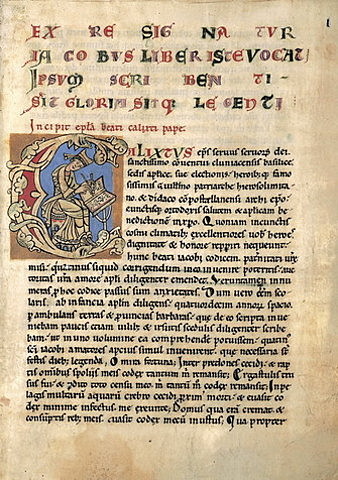 EX RE SIG NA TUR
IACOBUS LIBER ISTE VOCAT
IPSUM SCRI BEN TI-
SIT GLORIA SITQ LE GENTI
Incipit epla beati calixti pape.
CALIXTUS eps seruus seruorū dei
sanctissimo conuentui cluniacensis basilice
sedis aplice sue electionis, heroibʒq famo
sissimis Guillmo patriarche hierosolimita
no, & didaco copostellanensi archi epo
cunctisq orthodoxis salutem & aplicam be
nedictionē in xpo. Quoniam in cunctis
cosmi climatibʒ excellentiores uob heroes
dignitate & honore repperiri nequeunt
hunc beati iacobi codicem pat̄nitati ure
misi, quatinus siquid corrigendum in eo inuenire potitis, auc
toritas ura amore apli diligenter emendet. Veruntamen innu
metas p hoc codice passus sum anxietates. Dum uero essem sco
laris ab infancia aplm diligens, quatuordecim annorū spacio
pambulans terras & puincias barbaras, que de eo scripta inue
niebam paucis cedulis uilibʒ & irsutis sedulus diligenter scribe
bam, ut in uno uolumine ea comprehende potuissem, quatin
sci iacobi amatores apcius simul inuenirent que necessaria st
festis diebʒ legenda. O mira fortuna; Inter predones cecidi, & rap
tis omnibus spoliis meis codex tantum m remansit; Ergastulis tru
sus fui, & pdito toto censu meo m tantū codex remansit; In pe
lagis multarū aquarū crebro cecidi, proxim morti, & euasit co
dex minime infectus me exeunte; Domus qua eram cremat, &
consuptis reb meis euasit codex mecū inustus; Qua propter